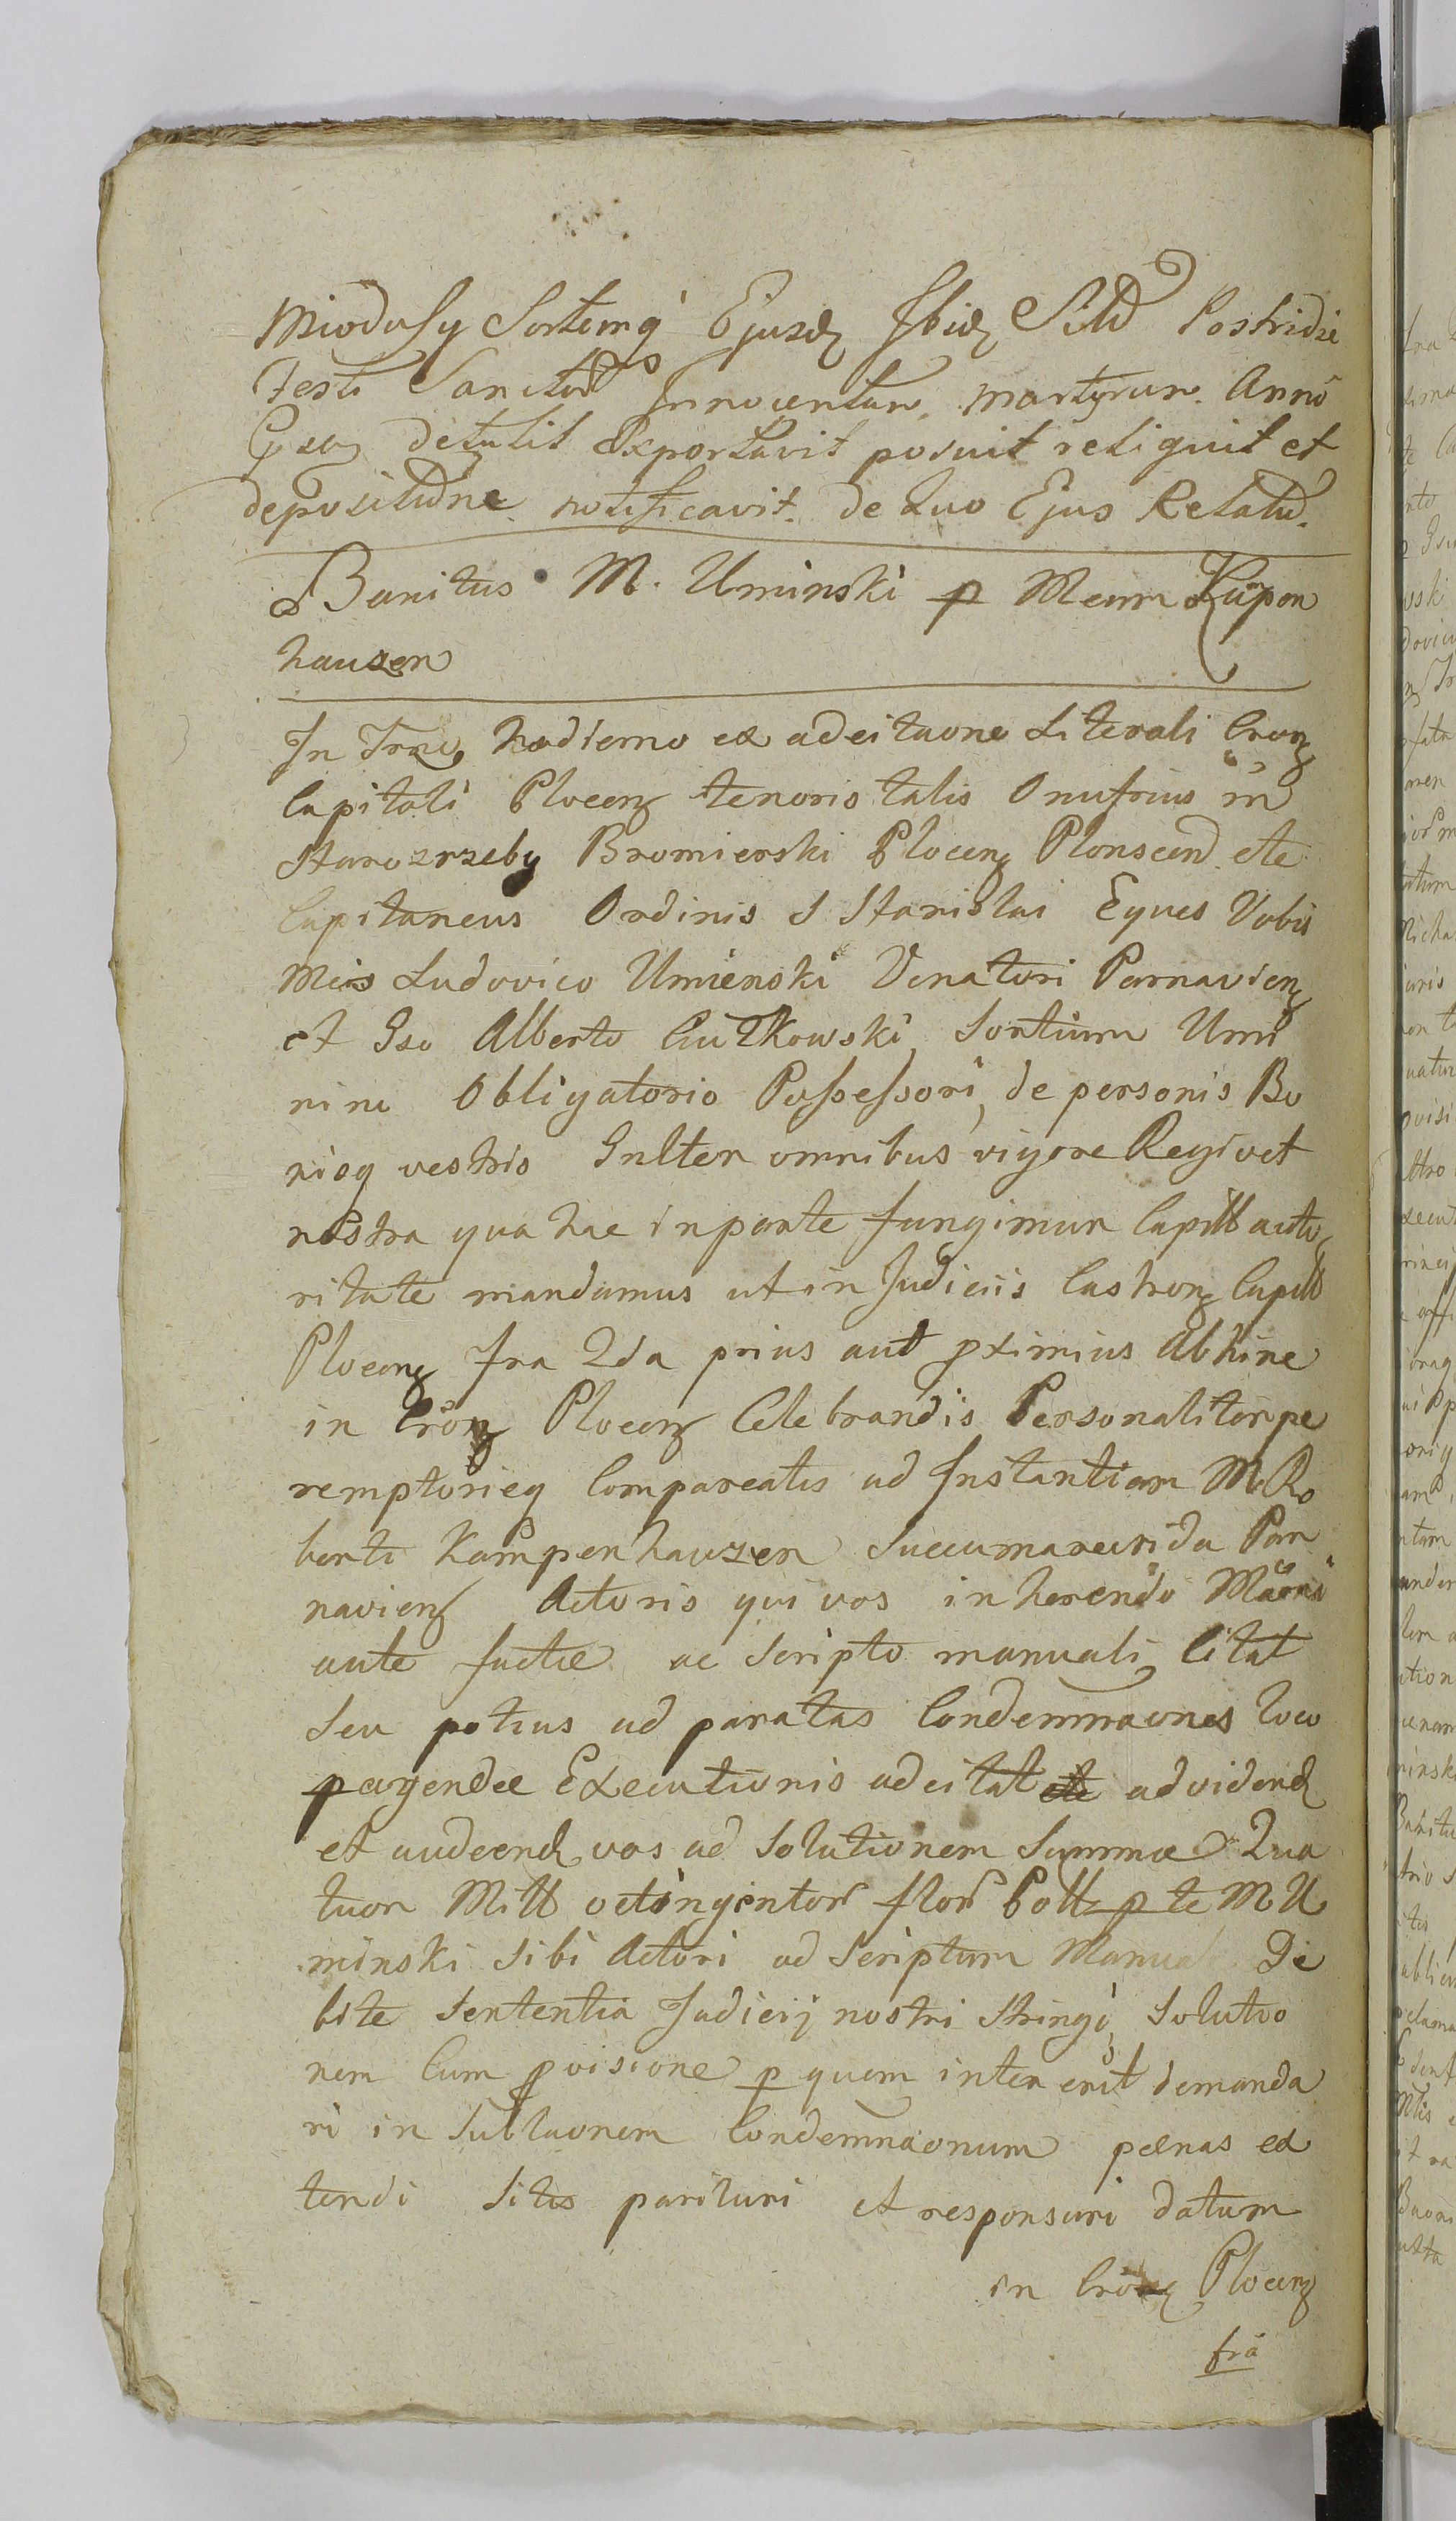 Miodusy Sortemq Ejusd Ibid Sitd Postridie
Festi Sanctor Innocentum martyrum Anno
Quo detulit Exportavit posuit reliquit et
depositione notificavit. de Quo Ejus Relatio.
Banitus M. Uminski p Meum Kũpon
hauzen
In Trno hodierno ex adcitaone Literali Cron
Capitali Plocen tenoris talis Onufrius in
Starozrzeby Bromierski Plocen Plonscen etc
Capitaneus Ordinis S Stanislai Eques Vobis
Mcis Ludovico Umienski Venatori Parnavien
et Gso Alberto Cutkowski Sortium Umi
nino Obligatorio Possessori, de personis Bo
nisq vestris Gnlter omnibus vigore Regio et
nostra qua hac in parte fungimur Capitll auto
ritate mandamus ut in Judiciis Castren Capitll
Plocen Fra 2da prius aut pximius Abhinc
in Cron Plocen Celebrandis Personaliter pe
remptorieq Compareatis ad Instantiam M Ro
berti Kampenhauzen Succumareida Par
navien Actoris qui vos inherendo
ante factæ ac Scripto manuali Citat
Seu potius ad paratas Condemnaones loco
peragendæ Executionis adcitat etc advidend
et audeend vos ad Solutionem Summæ Qua
tuor Mill octingentor flor Poll p te M U
minski Sibi Actori ad Scriptum Manual De
bite Sententia Judicij nostri Stringi, Solutio
nem Cum pvisione p quem inter erit demanda
ri in Subluonem Condemnaonum pœnas ex
tendi Sitis parituri et responsuri datum
in Cron Plocen
fra